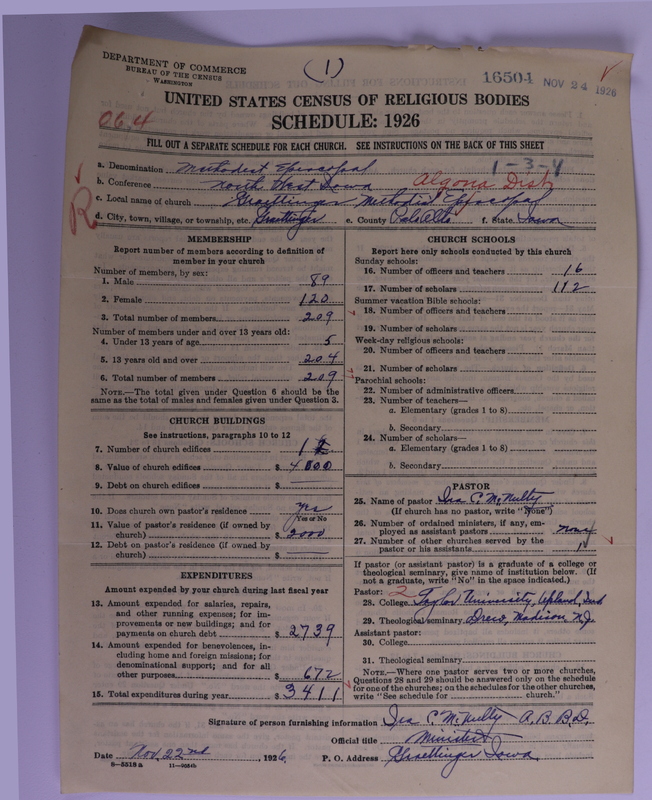 DEPARTMENT OF COMMERCE
BUREAU OF THE CENSUS
WASHINGTON
(1)
16504 NOV 24 1926
UNITED STATES CENSUS OF RELIGIOUS BODIES
SCHEDULE: 1926
06,4
FILL OUT A SEPARATE SCHEDULE FOR EACH CHURCH. SEE INSTRUCTIONS ON THE BACK OF THIS SHEET
1-3-4
a. Denomination Methodist Episcopal
b. Conference North West Iowa Algona Dist
R
c. Local name of church Graettinger Methodist Episcopal
d. City, town, village, or township, etc. Graettinger e. County Palo Alto f. State Iowa
MEMBERSHIP
Report number of members according to definition of
member in your church
Number of members, by sex:
1. Male 89
2. Female 120
3. Total number of members 209
Number of members under and over 13 years old:
4. Under 13 years of age 5
5. 13 years old and over 204
6. Total number of members 209
NOTE.—The total given under Question 6 should be the
same as the total of males and females given under Question 3.
CHURCH BUILDINGS
See instructions, paragraphs 10 to 12
7. Number of church edifices 1
8. Value of church edifices $ 4000
9. Debt on church edifices $
10. Does church own pastor's residence? yes
Yes or No
11. Value of pastor's residence (if owned by
church) $ 2000
12. Debt on pastor's residence (if owned by
church) $
EXPENDITURES
Amount expended by your church during last fiscal year
13. Amount expended for salaries, repairs,
and other running expenses; for im-
provements or new buildings; and for
payments on church debt $ 2739
14. Amount expended for benevolences, in-
cluding home and foreign missions; for
denominational support; and for all
other purposes $ 672
15. Total expenditures during year $ 3411
CHURCH SCHOOLS
Report here only schools conducted by this church
Sunday schools:
16. Number of officers and teachers 16
17. Number of scholars 112
Summer vacation Bible schools:
18. Number of officers and teachers
19. Number of scholars
Week-day religious schools:
20. Number of officers and teachers
21. Number of scholars
Parochial schools:
22. Number of administrative officers
23. Number of teachers—
a. Elementary (grades 1 to 8)
b. Secondary
24. Number of scholars—
a. Elementary (grades 1 to 8)
b. Secondary
PASTOR
25. Name of pastor Ira C. McNulty
(If church has no pastor, write "None")
26. Number of ordained ministers, if any, em-
ployed as assistant pastors none
27. Number of other churches served by the
pastor or his assistants
If pastor (or assistant pastor) is a graduate of a college or
theological seminary, give name of institution below. (If
not a graduate, write "No" in the space indicated.)
Pastor: 2
28. College Taylor University, Upland, Ind
29. Theological seminary Drew, Madison N.J.
Assistant pastor:
30. College
31. Theological seminary
NOTE.—Where one pastor serves two or more churches,
Questions 28 and 29 should be answered only on the schedule
for one of the churches; on the schedules for the other churches,
write "See schedule for church."
Signature of person furnishing information Ira C. McNulty A.B. B.D.
Official title Minister
Date Nov. 22nd, 1926 P. O. Address Graettinger Iowa
8—5518a 11—9054b